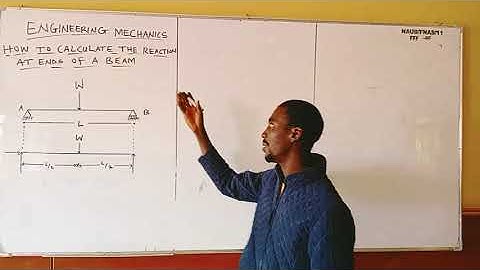 ENGINEERING MECHANICS
HOW TO CALCULATE THE REACTION
AT ENDS OF A BEAM
W
A
B
L
W
L/2
L/2